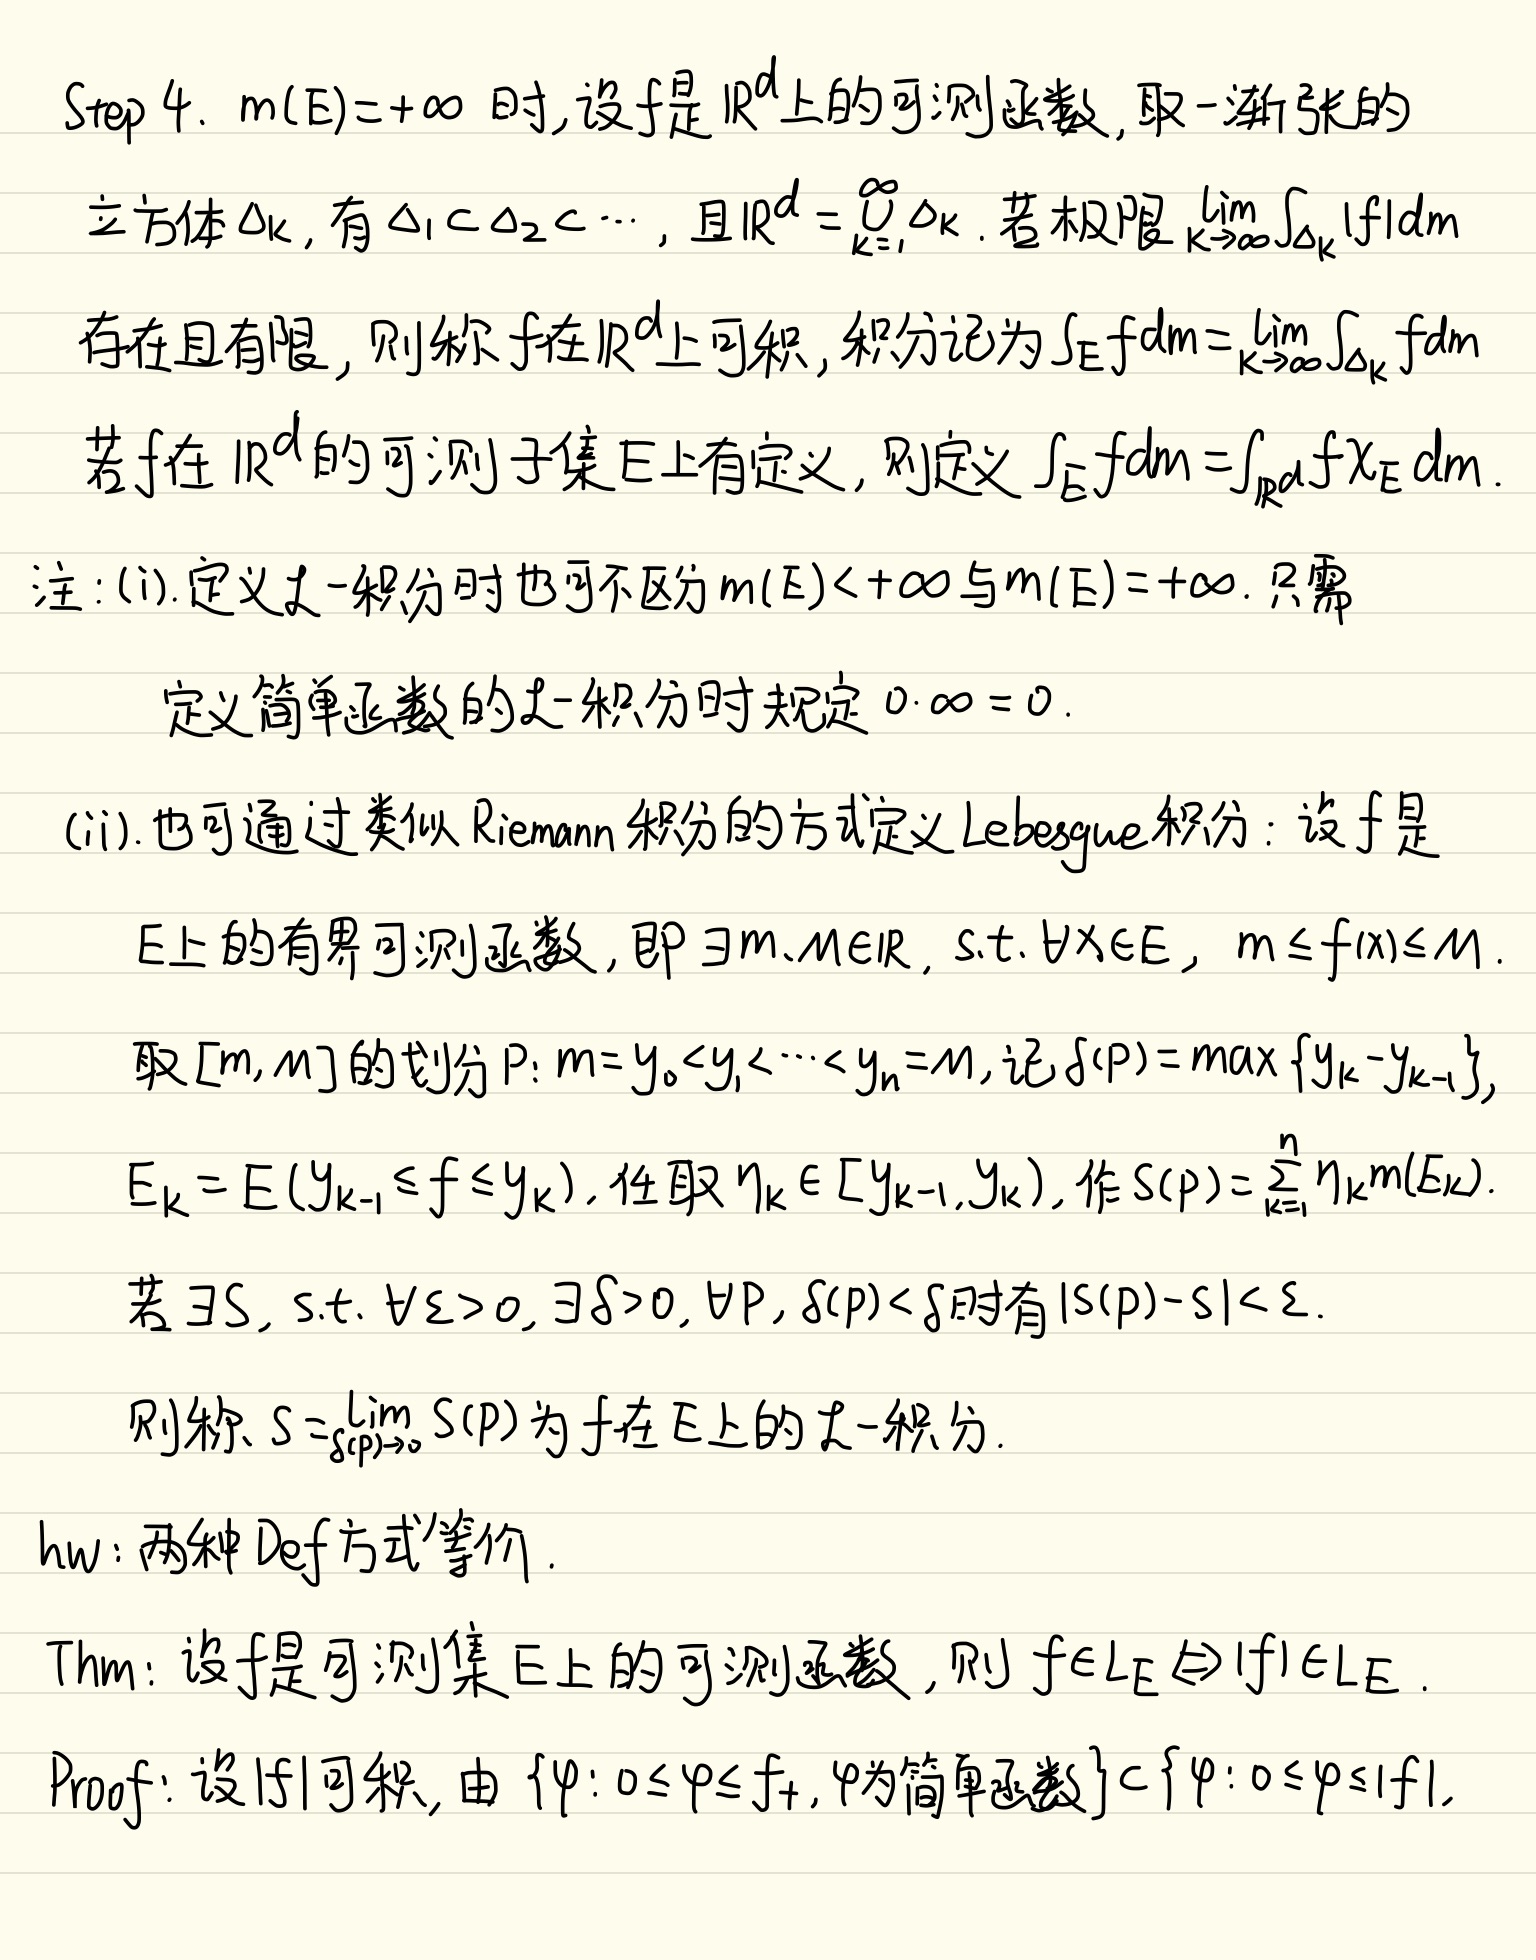 Step 4. m(E)=+∞ 时,设f是ℝ^d上的可测函数,取一渐张的
立方体Δ_k,有Δ_1⊂Δ_2⊂⋯,且ℝ^d=⋃_{k=1}^∞Δ_k.若极限lim_{k→∞}∫_{Δ_k}|f|dm
存在且有限,则称f在ℝ^d上可积,积分记为∫_E fdm=lim_{k→∞}∫_{Δ_k}fdm
若f在ℝ^d的可测子集E上有定义,则定义∫_E fdm=∫_{ℝ^d}fχ_E dm.
注:(i).定义ℒ-积分时也可不区分m(E)<+∞与m(E)=+∞.只需
定义简单函数的ℒ-积分时规定0·∞=0.
(ii).也可通过类似Riemann积分的方式定义Lebesgue积分:设f是
E上的有界可测函数,即∃m、M∈ℝ, s.t. ∀x∈E, m≤f(x)≤M.
取[m,M]的划分P:m=y_0<y_1<⋯<y_n=M,记δ(P)=max{y_k-y_{k-1}},
E_k=E(y_{k-1}≤f≤y_k),任取η_k∈[y_{k-1},y_k),作S(P)=∑_{k=1}^n η_k m(E_k).
若∃S, s.t. ∀ε>0,∃δ>0,∀P,δ(P)<δ时有|S(P)-S|<ε.
则称S=lim_{δ(P)→0}S(P)为f在E上的ℒ-积分.
hw:两种Def方式等价.
Thm:设f是可测集E上的可测函数,则f∈L_E⇔|f|∈L_E.
Proof:设|f|可积,由{φ:0≤φ≤f_+,φ为简单函数}⊂{φ:0≤φ≤|f|,